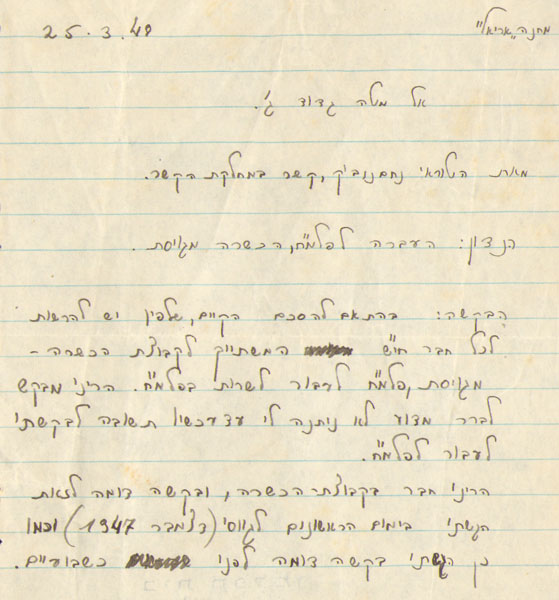 מחנה "אריאל"
25.3.48
אל מטה גדוד ג'.
מאת הטוראי נחמנוביץ, קשר במחלקת הקשר.
הנדון: העברה לפלמ"ח, הכשרה מגויסת.
הבקשה: בהתאם להסכם הקיים, שלפיו יש להרשות
לכל חבר חי"ש המשתייך לקבוצת הכשרה -
מגויסת, פלמ"ח לעבור לשרות בפלמ"ח. הריני מבקש
לברר מדוע לא ניתנה לי עד עכשיו תשובה לבקשתי
לעבור לפלמ"ח.
הריני חבר בקבוצת הכשרה, ובקשה דומה לזאת
הגשתי בימים הראשונים לגיוסי (דצמבר 1947) וכמו
כן הגשתי בקשה דומה לפני כשבועיים.